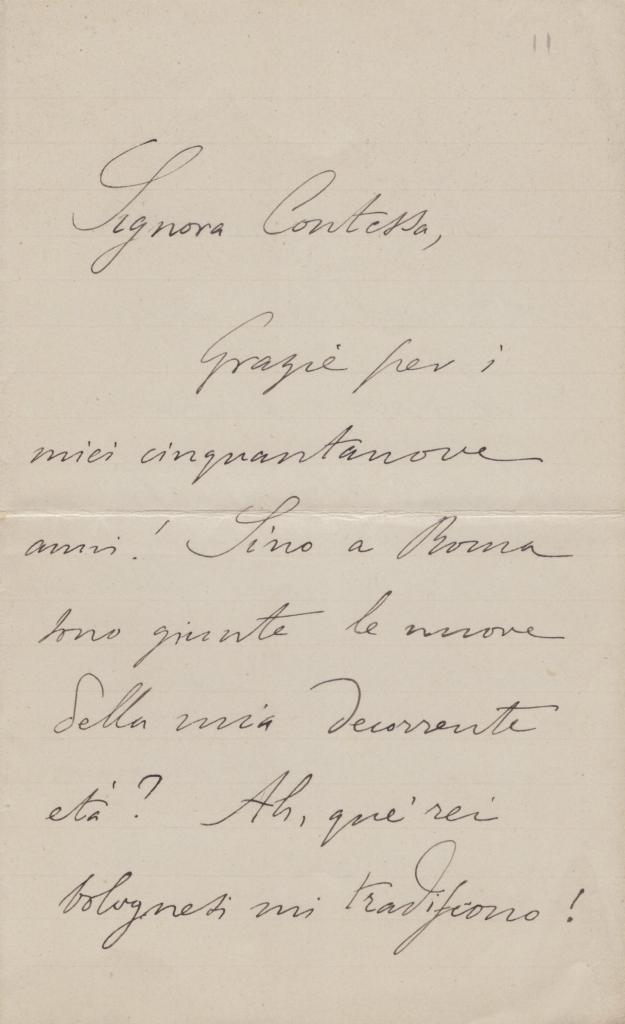 11
Signora Contessa,
Grazie per i
miei cinquantanove
anni! Sino a Roma
sono giunte le nuove
della mia decorrente
età? Ah, que' rei
bolognesi mi tradiscono!